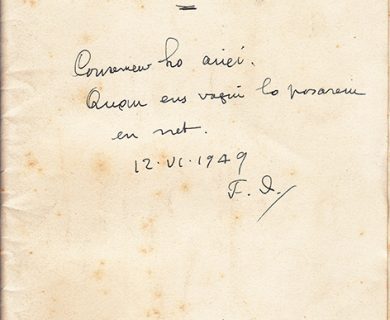 Conserveu ho així.
Quan ens vagui ho posarem
en net.
12·VI·1949
F. D.